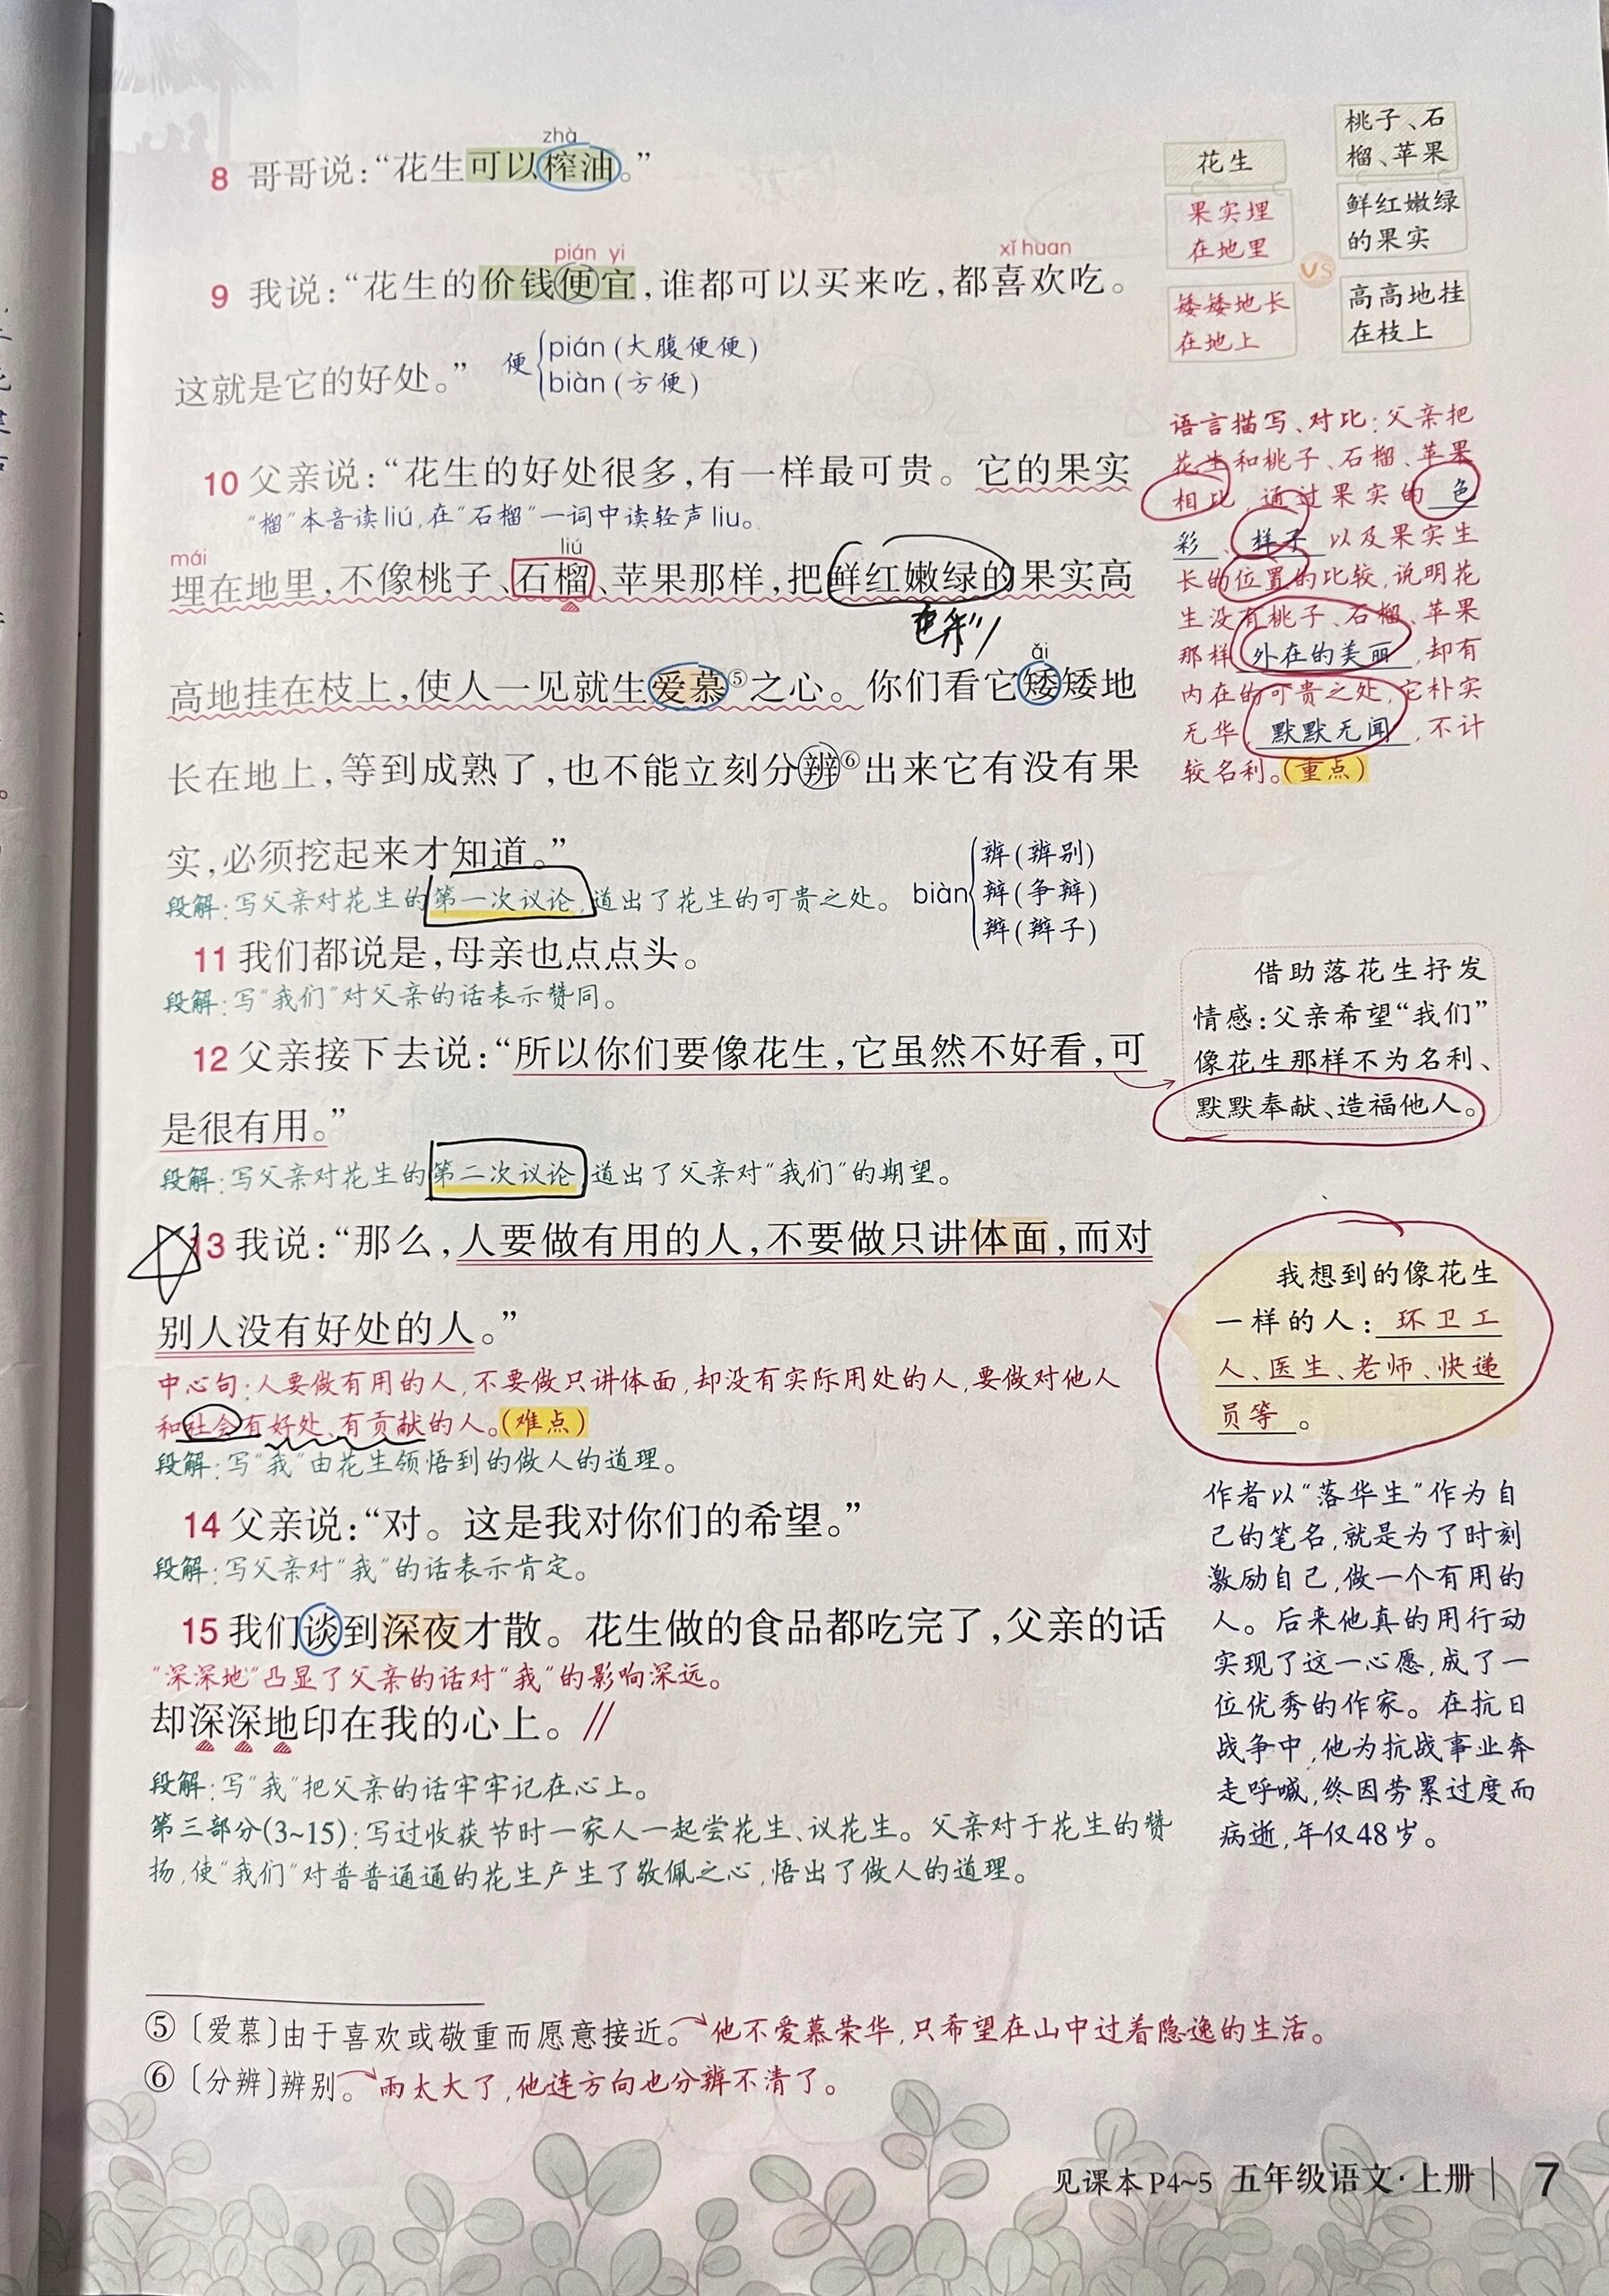 zhà
8 哥哥说：“花生可以榨油。”
pián yi xǐ huan
9 我说：“花生的价钱便宜，谁都可以买来吃，都喜欢吃。
这就是它的好处。”
便
pián（大腹便便）
biàn（方便）
10 父亲说：“花生的好处很多，有一样最可贵。它的果实
“榴”本音读liú，在“石榴”一词中读轻声liu。
mái liú
埋在地里，不像桃子、石榴、苹果那样，把鲜红嫩绿的果实高
色彩
ǎi
高地挂在枝上，使人一见就生爱慕⑤之心。你们看它矮矮地
长在地上，等到成熟了，也不能立刻分辨⑥出来它有没有果
实，必须挖起来才知道。”
段解：写父亲对花生的第一次议论，道出了花生的可贵之处。
biàn
辨（辨别）
辩（争辩）
辫（辫子）
11 我们都说是，母亲也点点头。
段解：写“我们”对父亲的话表示赞同。
12 父亲接下去说：“所以你们要像花生，它虽然不好看，可
是很有用。”
段解：写父亲对花生的第二次议论，道出了父亲对“我们”的期望。
13 我说：“那么，人要做有用的人，不要做只讲体面，而对
别人没有好处的人。”
中心句：人要做有用的人，不要做只讲体面，却没有实际用处的人，要做对他人
和社会有好处、有贡献的人。（难点）
段解：写“我”由花生领悟到的做人的道理。
14 父亲说：“对。这是我对你们的希望。”
段解：写父亲对“我”的话表示肯定。
15 我们谈到深夜才散。花生做的食品都吃完了，父亲的话
“深深地”凸显了父亲的话对“我”的影响深远。
却深深地印在我的心上。//
段解：写“我”把父亲的话牢牢记在心上。
第三部分(3~15)：写过收获节时一家人一起尝花生、议花生。父亲对于花生的赞
扬，使“我们”对普普通通的花生产生了敬佩之心，悟出了做人的道理。
花生
果实埋
在地里
矮矮地长
在地上
VS
桃子、石
榴、苹果
鲜红嫩绿
的果实
高高地挂
在枝上
语言描写、对比：父亲把
花生和桃子、石榴、苹果
相比，通过果实的 色
彩 、样子 以及果实生
长的位置的比较，说明花
生没有桃子、石榴、苹果
那样 外在的美丽 ，却有
内在的可贵之处，它朴实
无华， 默默无闻 ，不计
较名利。（重点）
借助落花生抒发
情感：父亲希望“我们”
像花生那样不为名利、
默默奉献、造福他人。
我想到的像花生
一样的人：环卫工
人、医生、老师、快递
员等 。
作者以“落华生”作为自
己的笔名，就是为了时刻
激励自己，做一个有用的
人。后来他真的用行动
实现了这一心愿，成了一
位优秀的作家。在抗日
战争中，他为抗战事业奔
走呼喊，终因劳累过度而
病逝，年仅48岁。
⑤〔爱慕〕由于喜欢或敬重而愿意接近。他不爱慕荣华，只希望在山中过着隐逸的生活。
⑥〔分辨〕辨别。雨太大了，他连方向也分辨不清了。
见课本P4~5 五年级语文·上册 7